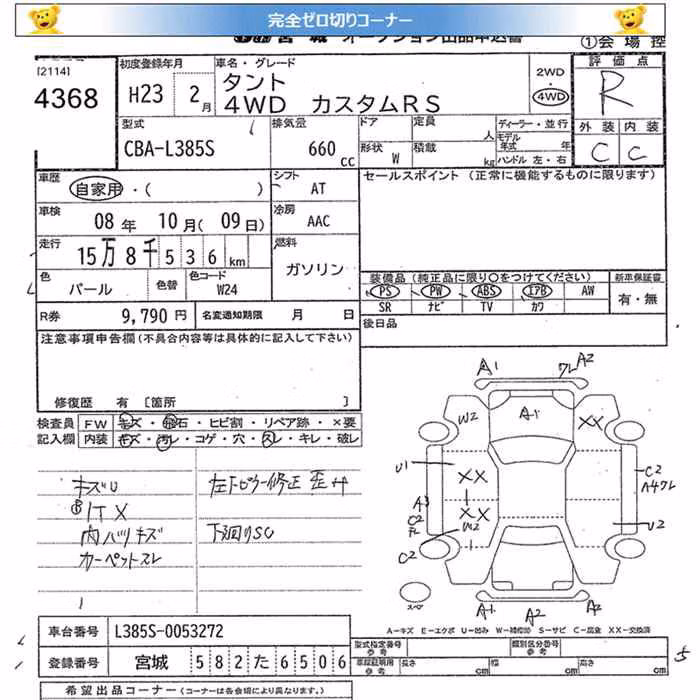 完全ゼロ切りコーナー
宮城 オークション出品申込書
①会場控
[2114]
4368
初度登録年月
H23 2月
車名・グレード
タント
4WD カスタムRS
2WD
・
4WD
評価点
R
外装 内装
C C
型式
CBA-L385S
排気量
660 cc
ドア
形状 W
定員 人
積載 kg
ディーラー・並行
モデル年式 年
ハンドル 左・右
車歴
自家用・( )
シフト
AT
セールスポイント (正常に機能するものに限ります)
車検
08年 10月(09日)
冷房
AAC
走行
15万8千536km
燃料
ガソリン
色
パール
色替
色コード
W24
装備品(純正品に限り○をつけてください)
新車保証書
PS PW ABS エアB AW
SR ナビ TV カワ
有・無
R券 9,790円
名変通知期限 月 日
後日品
注意事項申告欄(不具合内容等は具体的に記入して下さい)
修復歴 有 [箇所 ]
検査員
記入欄
FW キズ・飛石・ヒビ割・リペア跡・×要
内装 キズ・汚レ・コゲ・穴・スレ・キレ・破レ
キズU
内ハリキズ
カーペットスレ
左Fピラー修正 歪サ
下廻りSC
A1 ワレ A2
W2 A1 XX
U1 XX
C2
XX
W2
A3
C2
U2
C2
スペア
A1 A2 A2
A-キズ E-エクボ U-凹み W-補修跡 S-サビ C-腐食 XX-交換済
車台番号 L385S-0053272
登録番号 宮城 582た6506
型式指定番号
参考
類別区分番号
参考
車庫証明用
参考
長さ cm 幅 cm 高さ cm
5
希望出品コーナー(コーナーは各会場により異なります。)